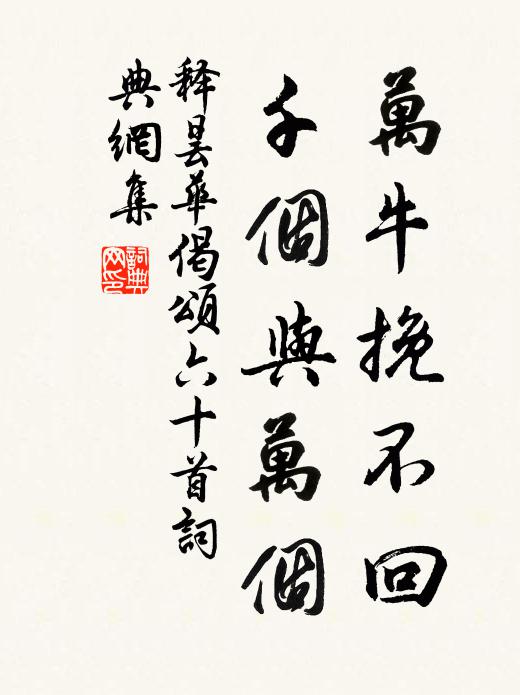 萬牛挽不回
千個與萬個
釋曇華偈頌六十首詞
典網集
詞典
网印